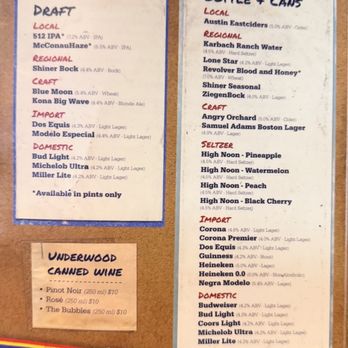 DRAFT
LOCAL
512 IPA* (7.2% ABV - IPA)
McConauHaze* (5.5% ABV - IPA)
REGIONAL
Shiner Bock (4.4% ABV - Bock)
CRAFT
Blue Moon (5.4% ABV - Wheat)
Kona Big Wave (4.4% ABV - Blonde Ale)
IMPORT
Dos Equis (4.3% ABV - Light Lager)
Modelo Especial (4.4% ABV - Light Lager)
DOMESTIC
Bud Light (4.2% ABV - Light Lager)
Michelob Ultra (4.2% ABV - Light Lager)
Miller Lite (4.2% ABV - Light Lager)
*Available in pints only
UNDERWOOD
CANNED WINE
• Pinot Noir (250 ml) $10
• Rosé (250 ml) $10
• The Bubbles (250 ml) $10
BOTTLE & CANS
LOCAL
Austin Eastciders (5.0% ABV - Cider)
REGIONAL
Karbach Ranch Water
(4.5% ABV - Hard Seltzer)
Lone Star (4.2% ABV - Light Lager)
Revolver Blood and Honey*
(7.0% ABV - Wheat)
Shiner Seasonal
ZiegenBock (4.9% ABV - Lager)
CRAFT
Angry Orchard (5.0% ABV - Cider)
Samuel Adams Boston Lager
(4.9% ABV - Lager)
SELTZER
High Noon - Pineapple
(4.5% ABV - Hard Seltzer)
High Noon - Watermelon
(4.5% ABV - Hard Seltzer)
High Noon - Peach
(4.5% ABV - Hard Seltzer)
High Noon - Black Cherry
(4.5% ABV - Hard Seltzer)
IMPORT
Corona (4.5% ABV - Light Lager)
Corona Premier (4.0% ABV - Light Lager)
Dos Equis (4.3% ABV - Light Lager)
Guinness (4.2% ABV - Stout)
Heineken (5.0% ABV - Lager)
Heineken 0.0 (0.0% ABV - Non/Alcoholic)
Negra Modelo (5.4% ABV - Lager)
DOMESTIC
Budweiser (5.0% ABV - Lager)
Bud Light (4.2% ABV - Light Lager)
Coors Light (4.2% ABV - Light Lager)
Michelob Ultra (4.2% ABV - Light Lager)
Miller Lite (4.2% ABV - Light Lager)